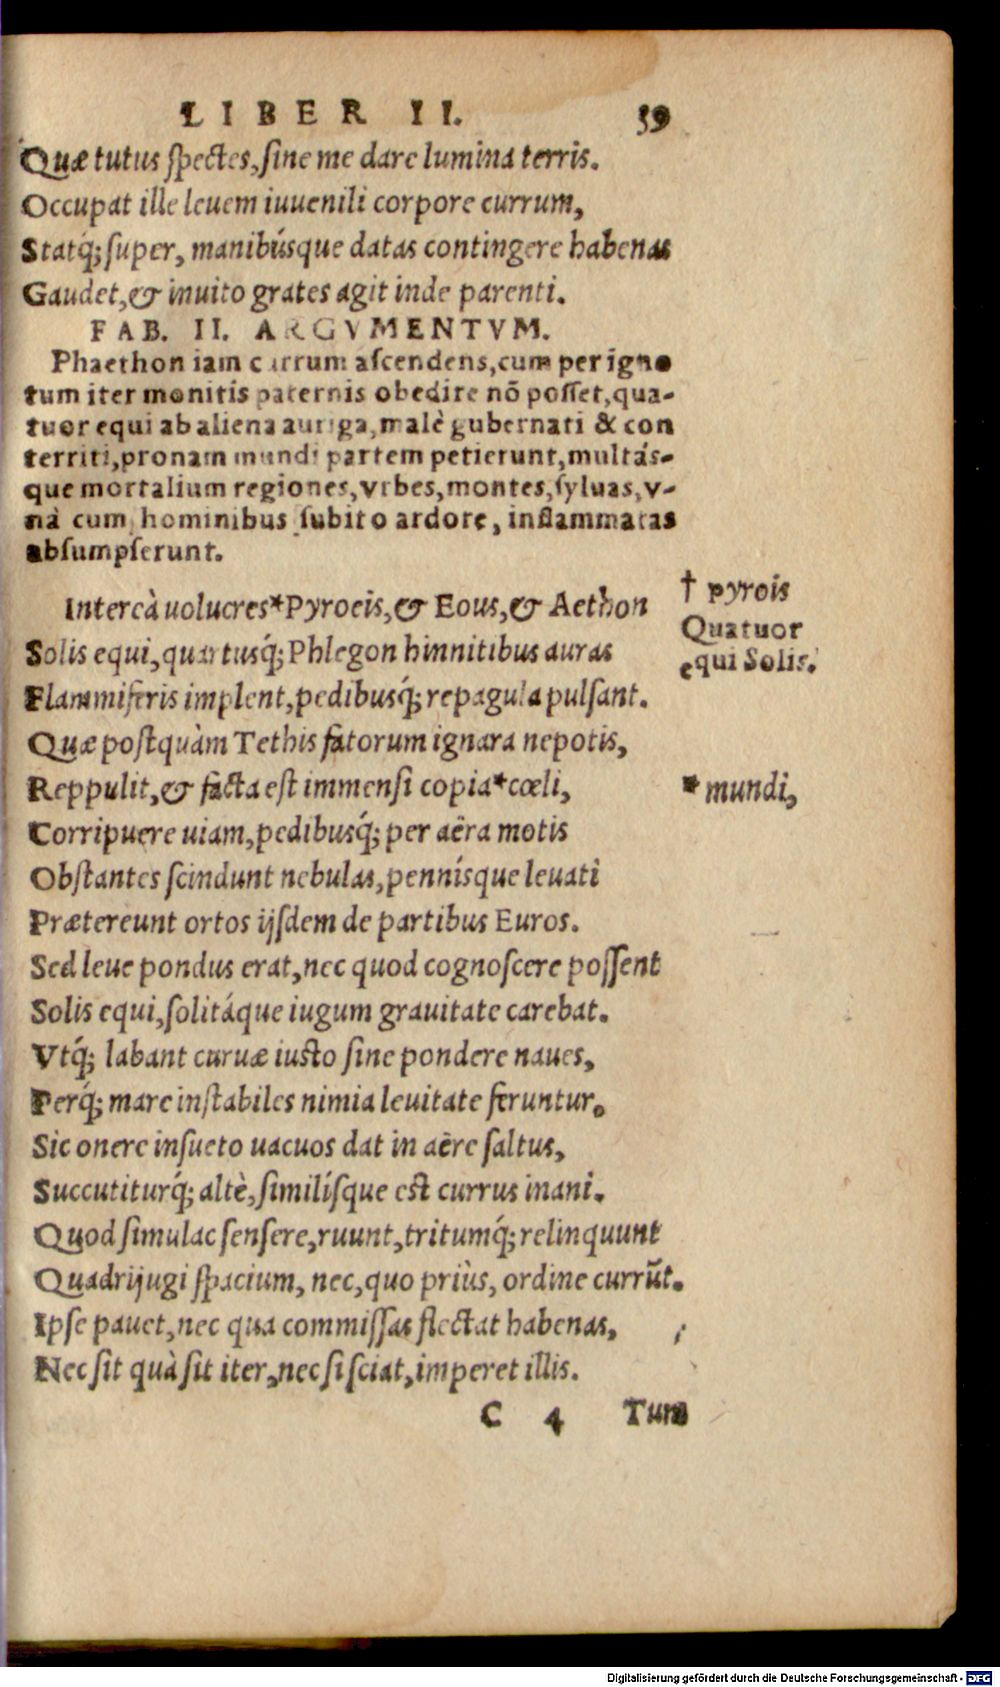 LIBER II. 39
Quæ tutus spectes, sine me dare lumina terris.
Occupat ille leuem iuuenili corpore currum,
Statq́; super, manibúsque datas contingere habenas
Gaudet, & inuito grates agit inde parenti.
FAB. II. ARGVMENTVM.
Phaethon iam currum ascendens, cum per igno
tum iter monitis paternis obedire nõ posset, qua-
tuor equi ab aliena auriga, malè gubernati & con
territi, pronam mundi partem petierunt, multás-
que mortalium regiones, vrbes, montes, syluas, v-
nà cum hominibus subito ardore, inflammatas
absumpserunt.
Intereà uolucres*Pyroeis, & Eous, & Aethon
† pyrois
Solis equi, quartusq́; Phlegon hinnitibus auras
Quatuor
equi Solis.
Flammiferis implent, pedibusq́; repagula pulsant.
Quæ postquàm Tethis fatorum ignara nepotis,
Reppulit, & facta est immensi copia*cœli,
* mundi,
Corripuere uiam, pedibusq́; per aëra motis
Obstantes scindunt nebulas, pennísque leuati
Prætereunt ortos ijsdem de partibus Euros.
Sed leue pondus erat, nec quod cognoscere possent
Solis equi, solitáque iugum grauitate carebat.
Vtq́; labant curuæ iusto sine pondere naues,
Perq́; mare instabiles nimia leuitate feruntur.
Sic onere insueto uacuos dat in aëre saltus,
Succutiturq́; altè, similísque est currus inani.
Quod simulac sensere, ruunt, tritumq́; relinquunt
Quadrijugi spacium, nec, quo priùs, ordine currũt.
Ipse pauet, nec qua commissas flectat habenas,
Nec sit quà sit iter, nec si sciat, imperet illis.
C 4 Tum
Digitalisierung gefördert durch die Deutsche Forschungsgemeinschaft - DFG